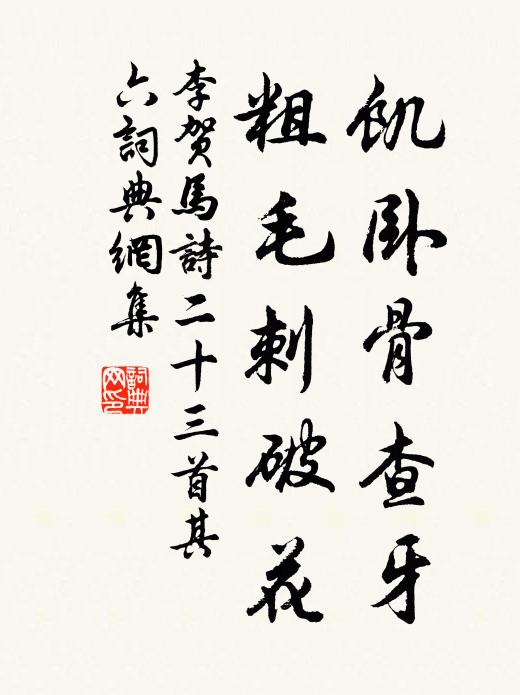 飢臥骨查牙
粗毛刺破花
李賀馬詩二十三首其
六詞典網集
詞典
网印